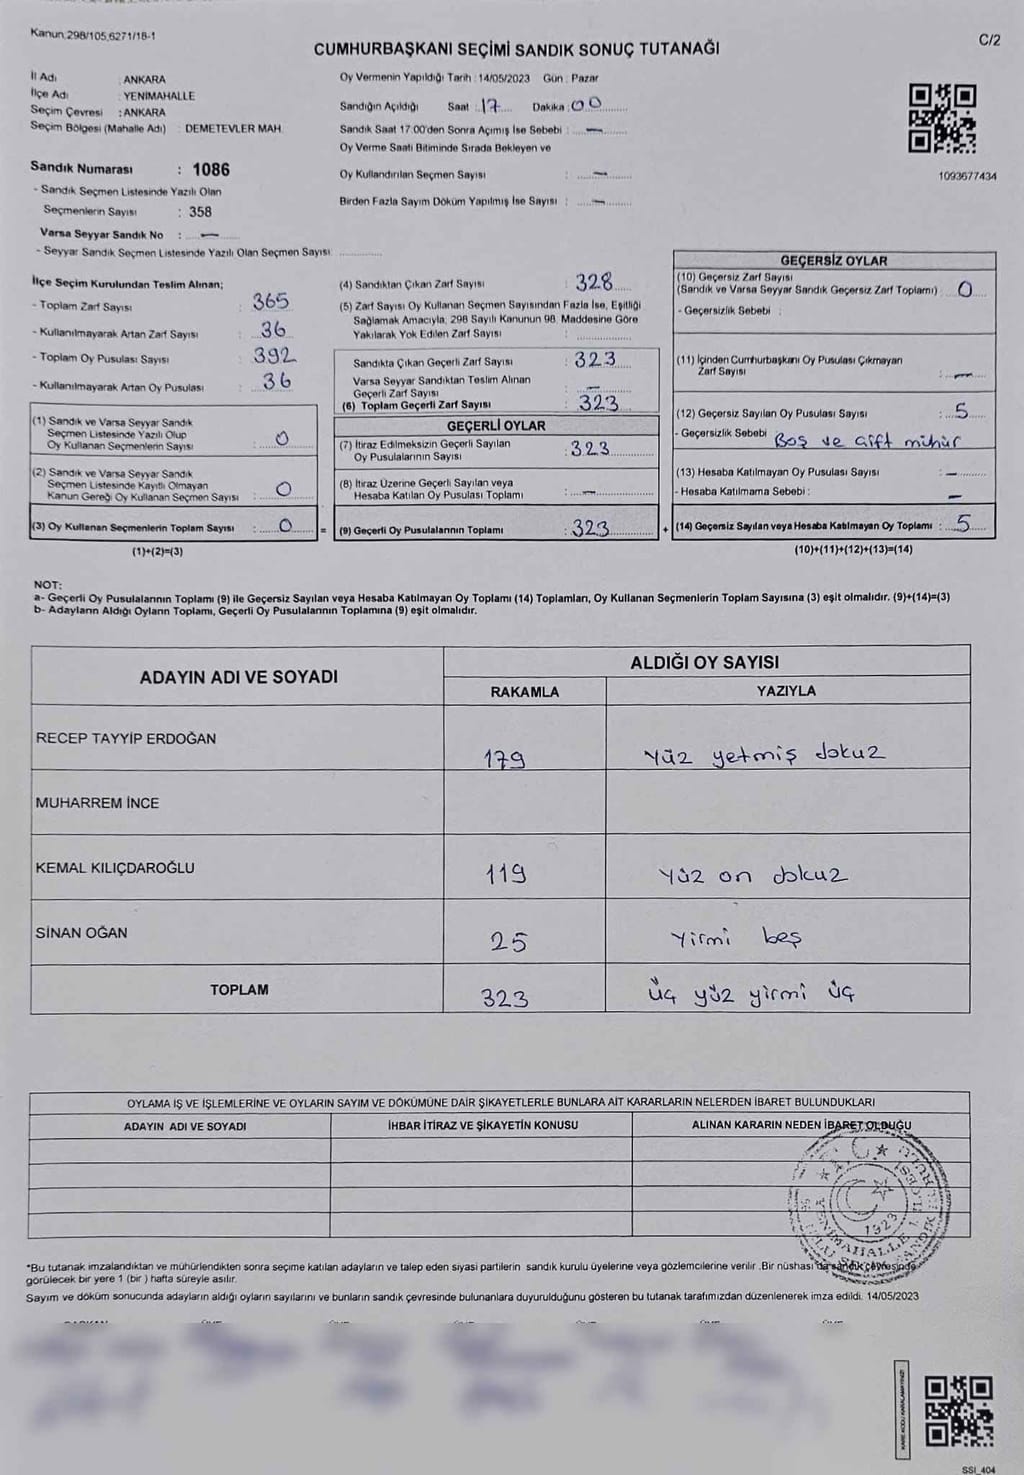 Kanun 298/105,6271/18-1
C/2
CUMHURBAŞKANI SEÇİMİ SANDIK SONUÇ TUTANAĞI
İl Adı : ANKARA
İlçe Adı : YENİMAHALLE
Seçim Çevresi : ANKARA
Seçim Bölgesi (Mahalle Adı) : DEMETEVLER MAH.
Sandık Numarası : 1086
- Sandık Seçmen Listesinde Yazılı Olan
Seçmenlerin Sayısı : 358
Varsa Seyyar Sandık No : —
- Seyyar Sandık Seçmen Listesinde Yazılı Olan Seçmen Sayısı:
Oy Vermenin Yapıldığı Tarih : 14/05/2023 Gün : Pazar
Sandığın Açıldığı Saat : 17 Dakika : 00
Sandık Saat 17:00'den Sonra Açımış İse Sebebi : —
Oy Verme Saati Bitiminde Sırada Bekleyen ve
Oy Kullandırılan Seçmen Sayısı : —
Birden Fazla Sayım Döküm Yapılmış İse Sayısı : —
1093677434
İlçe Seçim Kurulundan Teslim Alınan;
- Toplam Zarf Sayısı : 365
- Kullanılmayarak Artan Zarf Sayısı : 36
- Toplam Oy Pusulası Sayısı : 392
- Kullanılmayarak Artan Oy Pusulası : 36
(1) Sandık ve Varsa Seyyar Sandık
Seçmen Listesinde Yazılı Olup
Oy Kullanan Seçmenlerin Sayısı : 0
(2) Sandık ve Varsa Seyyar Sandık
Seçmen Listesinde Kayıtlı Olmayan
Kanun Gereği Oy Kullanan Seçmen Sayısı : 0
(3) Oy Kullanan Seçmenlerin Toplam Sayısı : 0 =
(1)+(2)=(3)
(4) Sandıktan Çıkan Zarf Sayısı : 328
(5) Zarf Sayısı Oy Kullanan Seçmen Sayısından Fazla İse, Eşitliği
Sağlamak Amacıyla, 298 Sayılı Kanunun 98. Maddesine Göre
Yakılarak Yok Edilen Zarf Sayısı :
Sandıkta Çıkan Geçerli Zarf Sayısı : 323
Varsa Seyyar Sandıktan Teslim Alınan
Geçerli Zarf Sayısı : —
(6) Toplam Geçerli Zarf Sayısı : 323
GEÇERLİ OYLAR
(7) İtiraz Edilmeksizin Geçerli Sayılan
Oy Pusulalarının Sayısı : 323
(8) İtiraz Üzerine Geçerli Sayılan veya
Hesaba Katılan Oy Pusulası Toplamı : —
(9) Geçerli Oy Pusulalarının Toplamı : 323 +
GEÇERSİZ OYLAR
(10) Geçersiz Zarf Sayısı
(Sandık ve Varsa Seyyar Sandık Geçersiz Zarf Toplamı) : 0
- Geçersizlik Sebebi :
(11) İçinden Cumhurbaşkanı Oy Pusulası Çıkmayan
Zarf Sayısı : —
(12) Geçersiz Sayılan Oy Pusulası Sayısı : 5
- Geçersizlik Sebebi Boş ve çift mühür
(13) Hesaba Katılmayan Oy Pusulası Sayısı : —
- Hesaba Katılmama Sebebi : —
(14) Geçersiz Sayılan veya Hesaba Katılmayan Oy Toplamı : 5
(10)+(11)+(12)+(13)=(14)
NOT:
a- Geçerli Oy Pusulalarının Toplamı (9) ile Geçersiz Sayılan veya Hesaba Katılmayan Oy Toplamı (14) Toplamları, Oy Kullanan Seçmenlerin Toplam Sayısına (3) eşit olmalıdır. (9)+(14)=(3)
b- Adayların Aldığı Oyların Toplamı, Geçerli Oy Pusulalarının Toplamına (9) eşit olmalıdır.
ADAYIN ADI VE SOYADI
ALDIĞI OY SAYISI
RAKAMLA YAZIYLA
RECEP TAYYİP ERDOĞAN 179 Yüz yetmiş dokuz
MUHARREM İNCE
KEMAL KILIÇDAROĞLU 119 Yüz on dokuz
SİNAN OĞAN 25 Yirmi beş
TOPLAM 323 Üç yüz yirmi üç
OYLAMA İŞ VE İŞLEMLERİNE VE OYLARIN SAYIM VE DÖKÜMÜNE DAİR ŞİKAYETLERLE BUNLARA AİT KARARLARIN NELERDEN İBARET BULUNDUKLARI
ADAYIN ADI VE SOYADI İHBAR İTİRAZ VE ŞİKAYETİN KONUSU ALINAN KARARIN NEDEN İBARET OLDUĞU
T.C.
1923
YENİMAHALLE 1. İLÇESİ
*Bu tutanak imzalandıktan ve mühürlendikten sonra seçime katılan adayların ve talep eden siyasi partilerin sandık kurulu üyelerine veya gözlemcilerine verilir .Bir nüshası da sandık çevresinde
görülecek bir yere 1 (bir ) hafta süreyle asılır.
Sayım ve döküm sonucunda adayların aldığı oyların sayılarını ve bunların sandık çevresinde bulunanlara duyurulduğunu gösteren bu tutanak tarafımızdan düzenlenerek imza edildi. 14/05/2023
KARE KODU KARALAMAYINIZ!
SSI_404